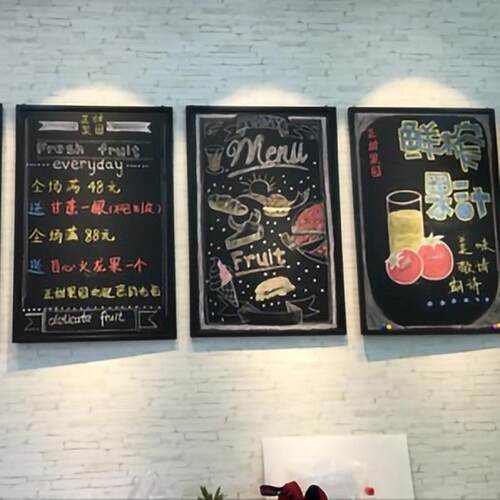 正甜
果园
Fresh fruit
everyday
全场满 48元
送 甘蔗一根
全场满 88元
送 白心火龙果一个
正甜果园
delicate fruit
Menu
Fruit
正甜果园
鲜榨
果汁